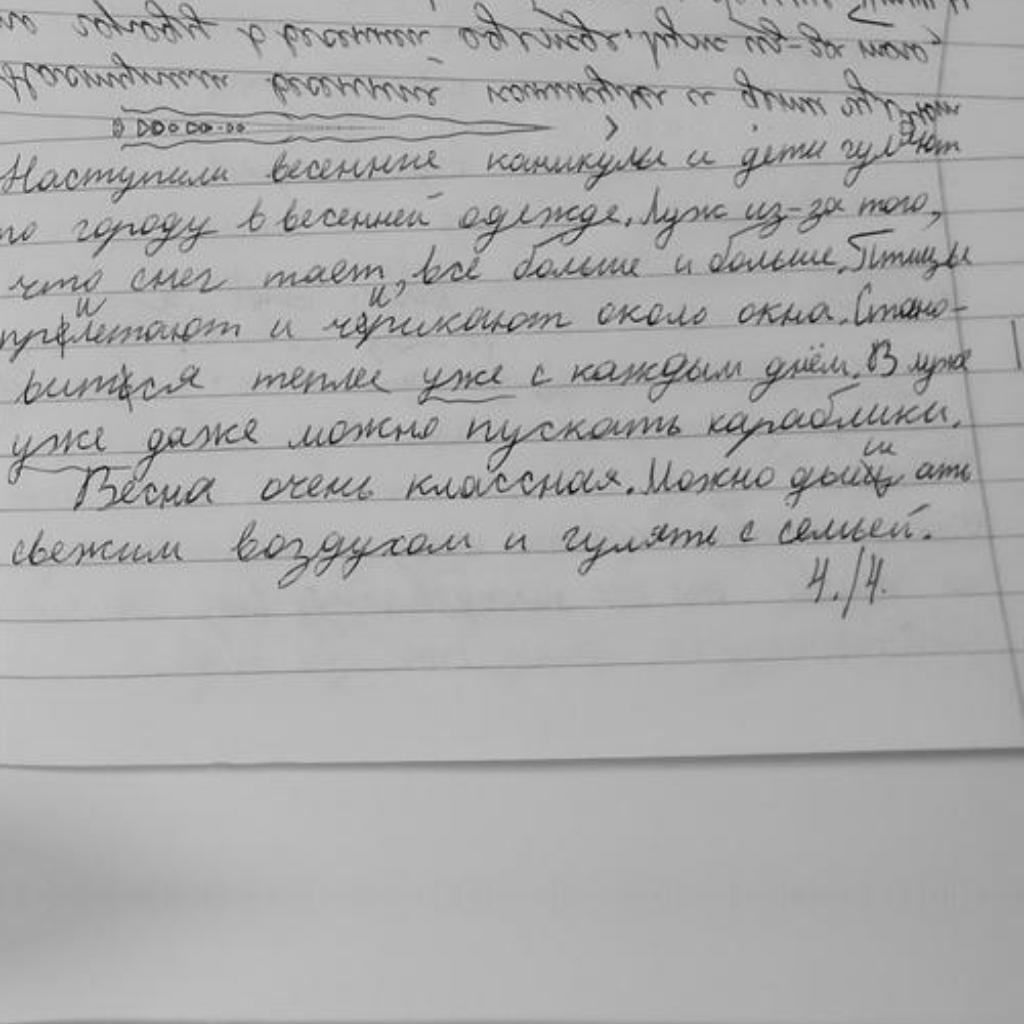 Наступили весенние каникулы и дети гуляют
по городу в весенней одежде. Луж из-за того,
что снег тает, всё больше и больше. Птицы
прилетают и чирикают около окна. Стано-
вится теплее уже с каждым днём. В луже
уже даже можно пускать караблики.
Весна очень классная. Можно дышать
свежим воздухом и гулять с семьей.
4./4.